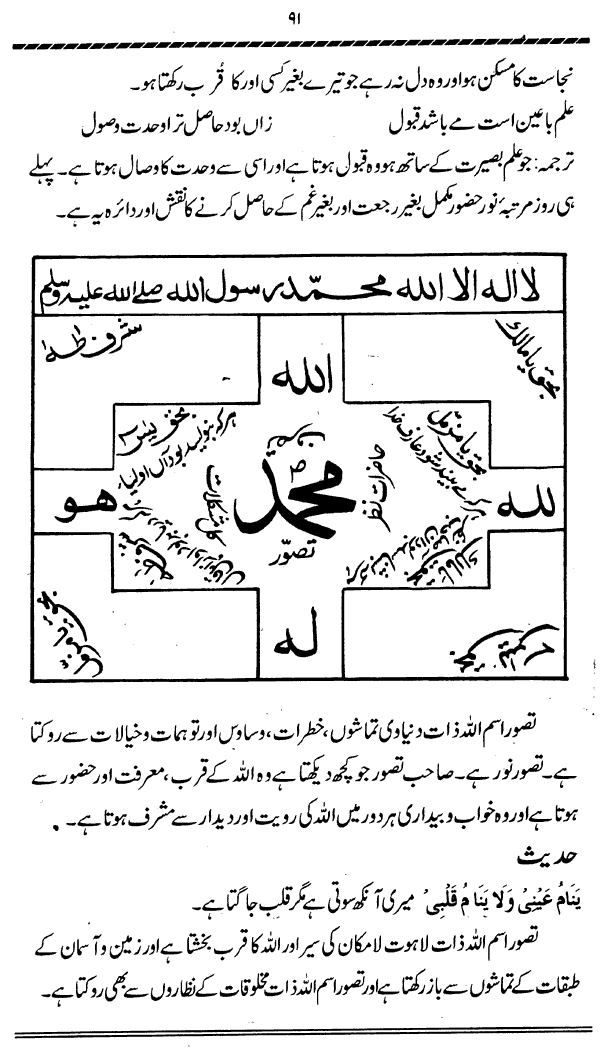 ۹۱
نجاست کا مسکن ہو اور وہ دل نہ رہے جو تیرے بغیر کسی اور کا قُرب رکھتا ہو۔
علم با عین است مے باشد قبول زاں بود حاصل ترا وحدت وصول
ترجمہ: جو علم بصیرت کے ساتھ ہو وہ قبول ہوتا ہے اور اسی سے وحدت کا وصال ہوتا ہے۔ پہلے
ہی روز مرتبۂ نور حضور مکمل بغیر رجعت اور بغیر غم کے حاصل کرنے کا نقش اور دائرہ یہ ہے۔
لا الہ الا اللہ محمدر سول اللہ صلے اللہ علیہ وسلم
بحق یا مالک
شرف طہٰ
اللہ
بحق یا مزمل
ہر کرے بیند شود عارف خدا
بحق یٰس
ہر کہ بنو لید بود آں اولیاء
حاضرات نظر
محمد
کل مشکلات
تصوّر
للہ
ھو
لہ
تصور اسم اللہ ذات دنیاوی تماشوں، خطرات، وساوس اور توہمات و خیالات سے روکتا
ہے۔ تصور نور ہے۔ صاحب تصور جو کچھ دیکھتا ہے وہ اللہ کے قرب، معرفت اور حضور سے
ہوتا ہے اور وہ خواب و بیداری ہر دور میں اللہ کی رویت اور دیدار سے مشرف ہوتا ہے۔
حدیث
یَنَامُ عَیْنِیْ وَلَا یَنَامُ قَلْبِیْ میری آنکھ سوتی ہے مگر قلب جاگتا ہے۔
تصور اسم اللہ ذات لاہوت لامکان کی سیر اور اللہ کا قرب بخشتا ہے اور زمین و آسمان کے
طبقات کے تماشوں سے باز رکھتا ہے اور تصور اسم اللہ ذات مخلوقات کے نظاروں سے بھی روکتا ہے۔